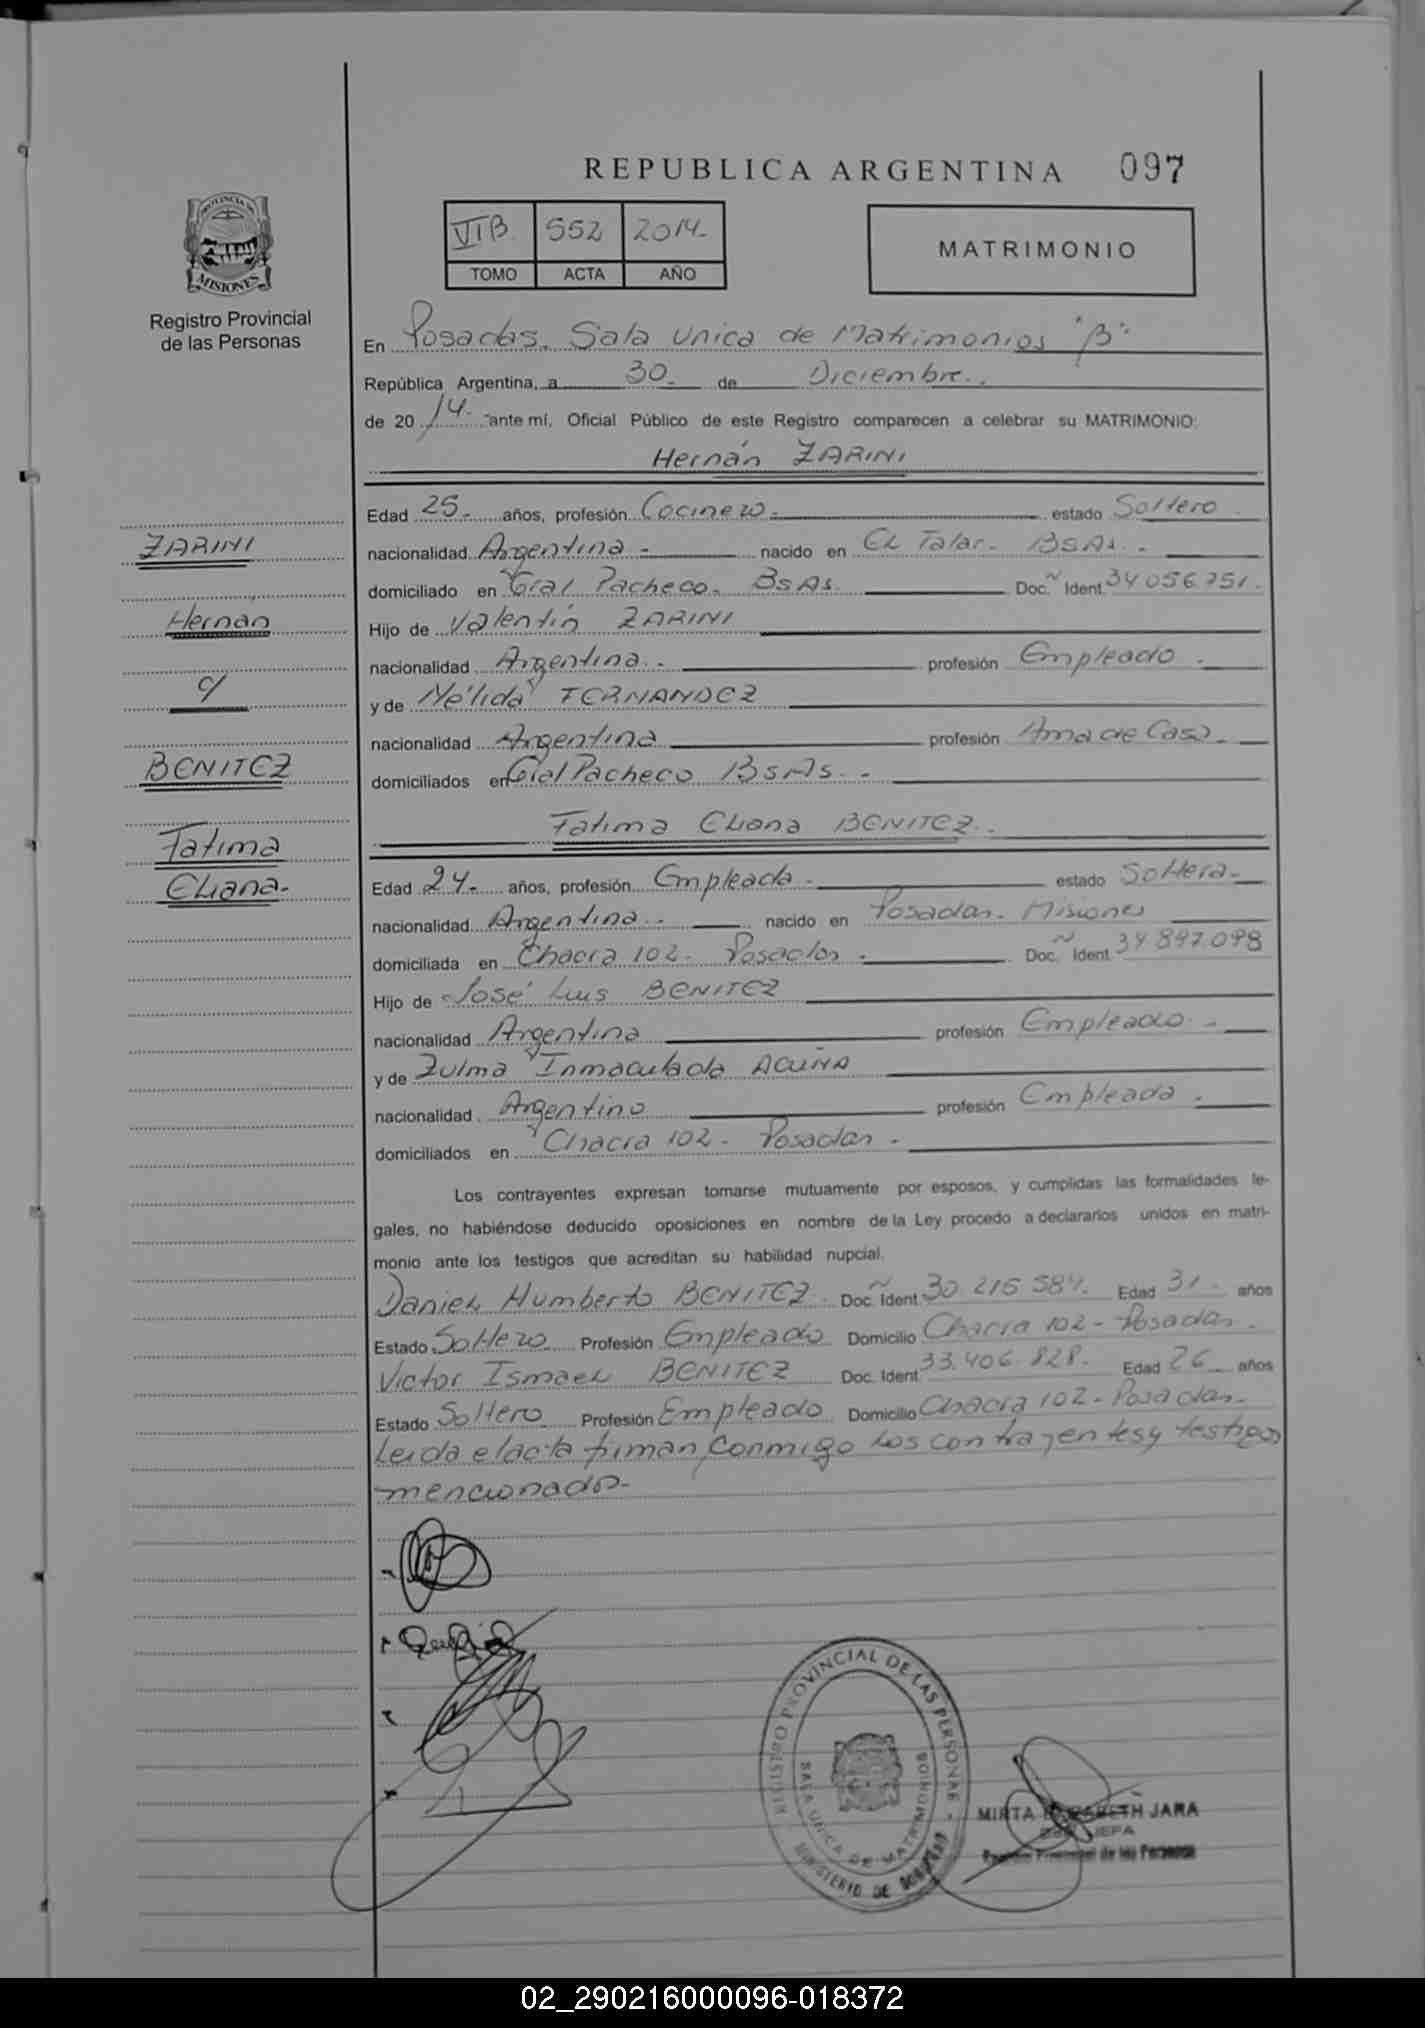 REPUBLICA ARGENTINA 097
PROVINCIA DE
MISIONES
Registro Provincial
de las Personas
VIB 552 2014-
TOMO ACTA AÑO
MATRIMONIO
En Posadas. Sala Unica de Matrimonios "B".
República Argentina, a 30 de Diciembre.
de 20 14. ante mí, Oficial Público de este Registro comparecen a celebrar su MATRIMONIO:
Hernán ZARINI
ZARINI
Hernán
c/
BENITEZ
Fatima
Eliana-
Edad 25- años, profesión Cocinero- estado Soltero
nacionalidad Argentina- nacido en El Talar- BsAs.-
domiciliado en Gral Pacheco. BsAs. Doc. Ident. 34.056.751.
Hijo de Valentín ZARINI
nacionalidad Argentina.- profesión Empleado.
y de Nélida FERNANDEZ
nacionalidad Argentina profesión Ama de Casa-
domiciliados en Gral Pacheco BsAs.-
Fatima Eliana BENITEZ.
Edad 24- años, profesión Empleada- estado Soltera-
nacionalidad Argentina.- nacido en Posadas. Misiones
domiciliada en Chacra 102- Posadas. Doc. Ident. 34.897.098
Hijo de José Luis BENITEZ
nacionalidad Argentina profesión Empleado.-
y de Zulma Inmaculada ACUÑA
nacionalidad Argentina profesión Empleada.
domiciliados en Chacra 102- Posadas-
Los contrayentes expresan tomarse mutuamente por esposos, y cumplidas las formalidades le-
gales, no habiéndose deducido oposiciones en nombre de la Ley procedo a declararlos unidos en matri-
monio ante los testigos que acreditan su habilidad nupcial.
Daniel Humberto BENITEZ. Doc. Ident. 30.215.584. Edad 31. años
Estado Soltero Profesión Empleado Domicilio Chacra 102- Posadas.
Victor Ismael BENITEZ Doc. Ident. 33.406.828. Edad 26 años
Estado Soltero Profesión Empleado Domicilio Chacra 102- Posadas-
Leida el acta firman conmigo los contrayentes y testigos
mencionados-
REGISTRO PROVINCIAL DE LAS PERSONAS
SALA UNICA DE MATRIMONIOS
MINISTERIO DE GOBIERNO
MIRTA ELIZABETH JARA
JEFA
Registro Provincial de las Personas
02_290216000096-018372